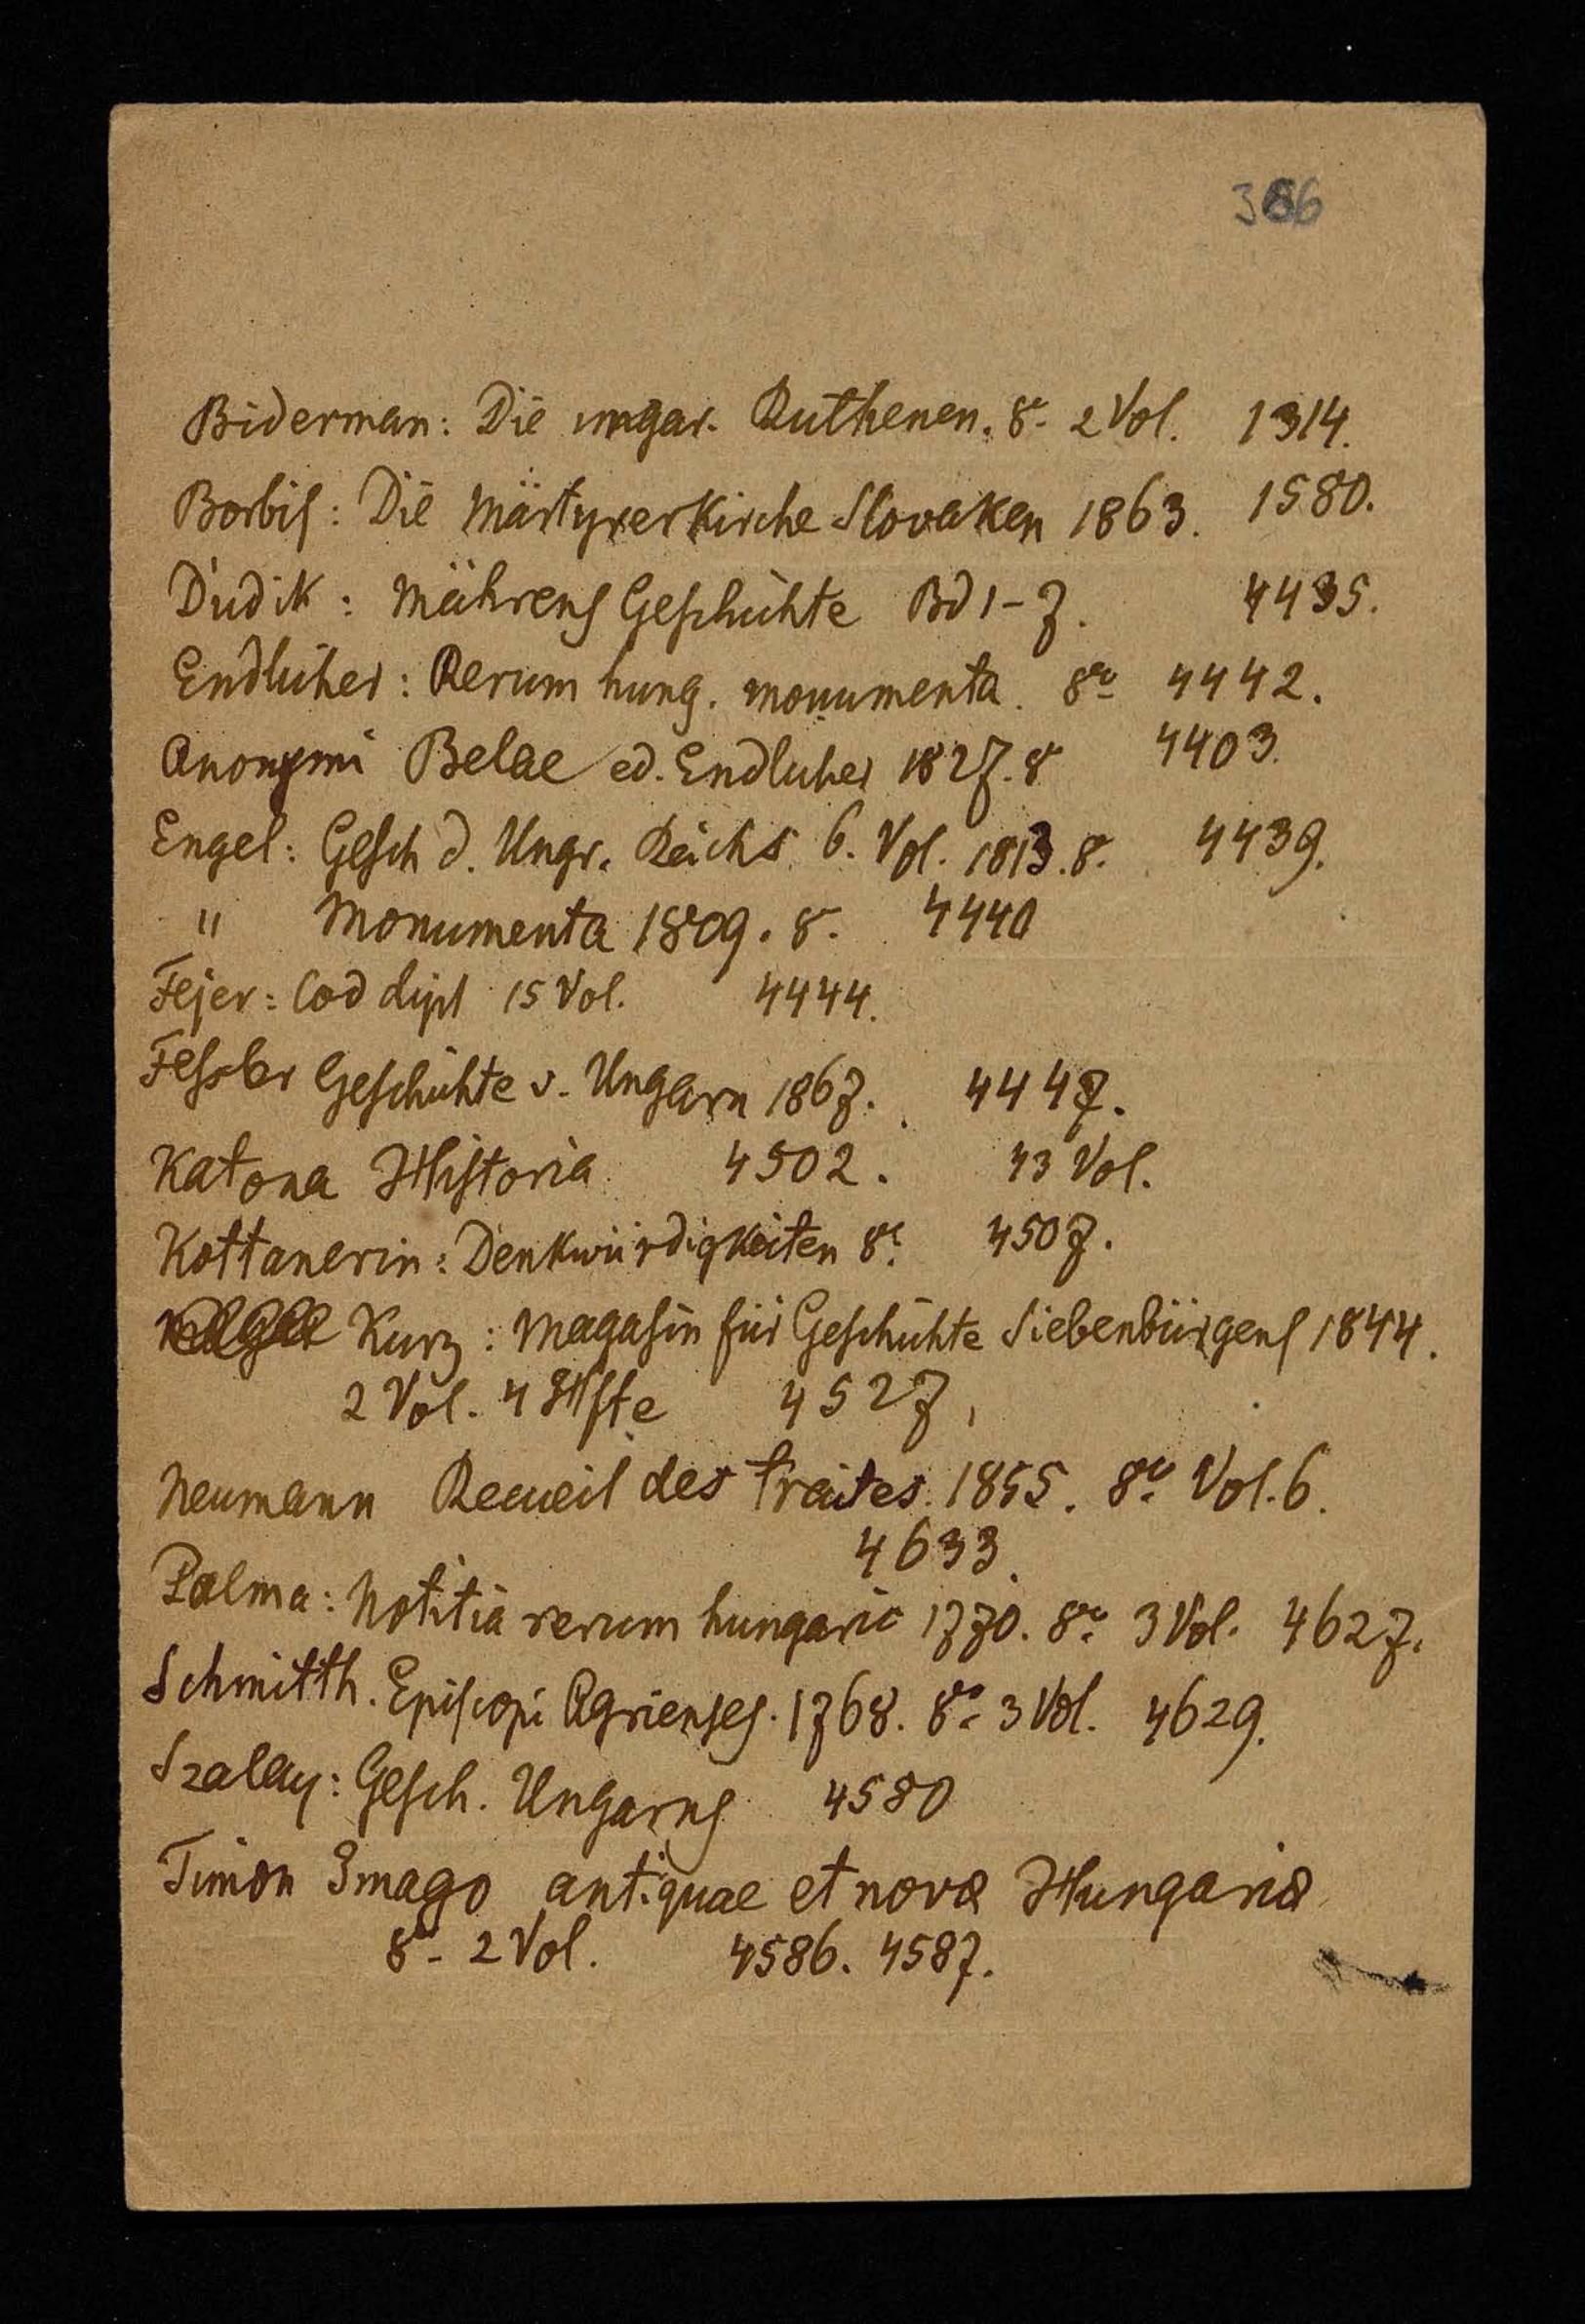 386
Biderman: Die ungar. Ruthenen. 8º 2 Vol. 1314.
Borbis: Die Märtyrerkirche Slovaken 1863. 1580.
Dudik: Mährens Geschichte Bd 1-7. 4435.
Endlicher: Rerum hung. monumenta. 8º 4442.
Anonymi Belae ed. Endlicher 1827. 8º 4403.
Engel: Gesch d. Ungr. Reichs 6. Vol. 1813. 8º. 4439.
" Monumenta 1809. 8º. 4440
Fejer: Cod dipl 15 Vol. 4444.
Fessler Geschichte v. Ungarn 1867. 4447.
Katona Historia 4502. 43 Vol.
Kottanerin: Denkwürdigkeiten 8º. 4507.
Kurz: Magasin für Geschichte Siebenbürgens 1844.
2 Vol. 4 Hfte 4527,
Neumann Recueil des traites. 1855. 8º Vol. 6.
4633.
Palma: Notitia rerum hungaric 1770. 8º 3 Vol. 4627.
Schmitth. Episcopi Agrienses. 1768. 8º 3 Vol. 4629.
Szalay: Gesch. Ungarns 4580
Timon Imago antiquae et novae Hungariae
8º- 2 Vol. 4586. 4587.